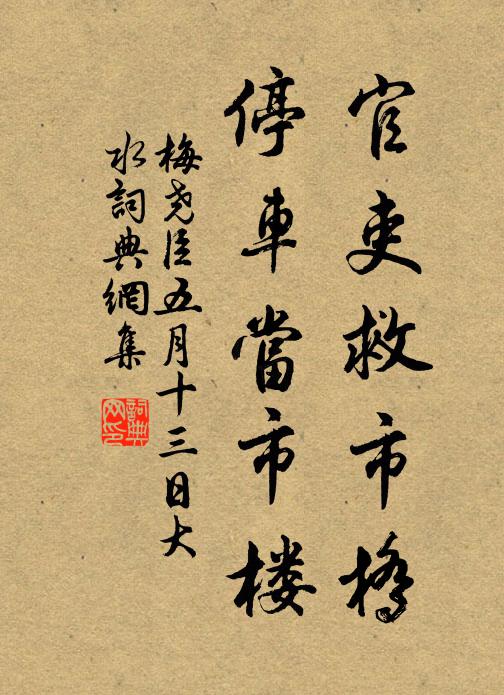 官吏救市橋
停車當市楼
梅尧臣五月十三日大
水詞典網集
詞典网印